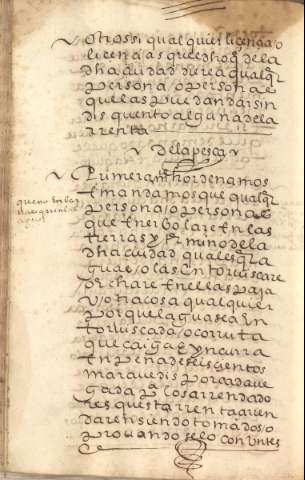 Otrossi qualquier licençia o
licençias que el dho q̃ de la
dha çiudad du rea qualqr
persona o personas
que las puedan dar sin
disquento alguno de la
rrenta
De la pesca
Primeramte hordenamos
e mandamos que qualqr
persona o personas
que enerbolare en las
tierras y termino de la
dha ciudad quales qr
aguas o las enturuiare
o echare en ellas paja
u otra cosa qualquier
por que la agua sea en
toruiscada o corruta
que caiga e yncurra
en pena de seisçientos
maravedis por cada ve
gada pa los arrendado
res que esta rrenta aRen
daren siendo tomado o
prouando selo con untes